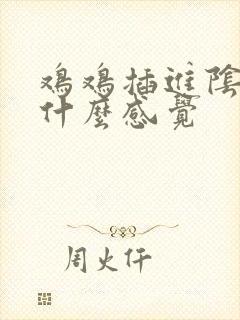 鸡鸡插進陰
什麼感覺
周火仟